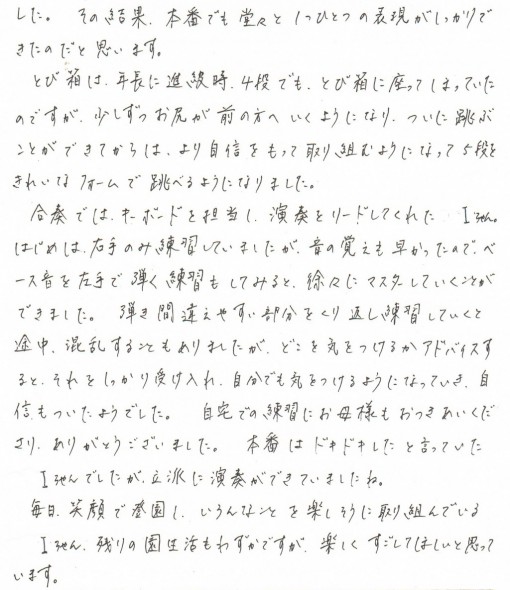 した。 その結果、本番でも堂々と1つひとつの表現がしっかりで
きたのだと思います。
とび箱は、年長に進級時、4段でも、とび箱に座ってしまっていた
のですが、少しずつお尻が前の方へいくようになり、ついに跳ぶ
ことができてからは、より自信をもって取り組むようになって5段を
きれいなフォームで跳べるようになりました。
合奏では、キーボードを担当し、演奏をリードしてくれた Iちゃん。
はじめは、右手のみ練習していましたが、音の覚えも早かったので、ベ
ース音を左手で弾く練習もしてみると、徐々にマスターしていくことが
できました。 弾き間違えやすい部分をくり返し練習していくと
途中、混乱することもありましたが、どこを気をつけるかアドバイスす
ると、それをしっかり受け入れ、自分でも気をつけるようになっていき、自
信もついたようでした。 自宅での練習にお母様もおつきあいくだ
さり、ありがとうございました。 本番はドキドキしたと言っていた
Iちゃんでしたが、立派に演奏ができていましたね。
毎日、笑顔で登園し、いろんなことを楽しそうに取り組んでいる
Iちゃん、残りの園生活もわずかですが、楽しくすごしてほしいと思って
います。